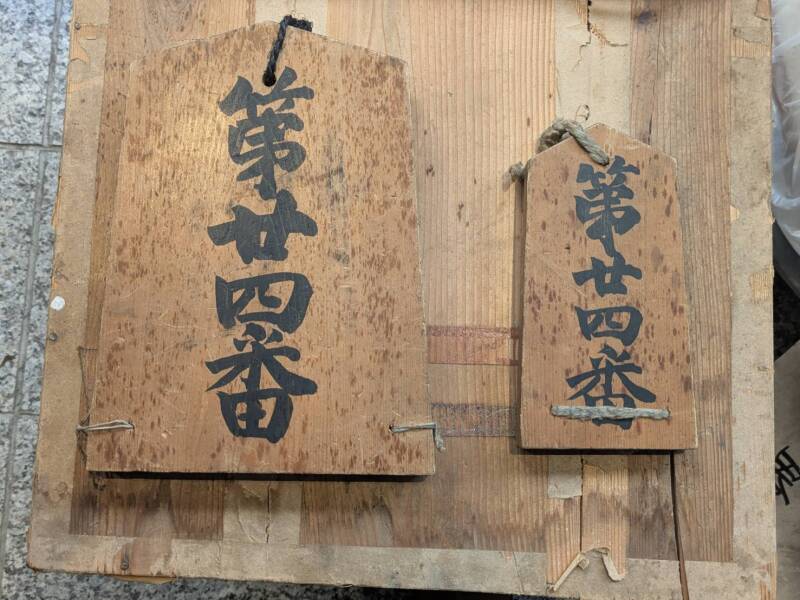 第廿四番
第廿四番